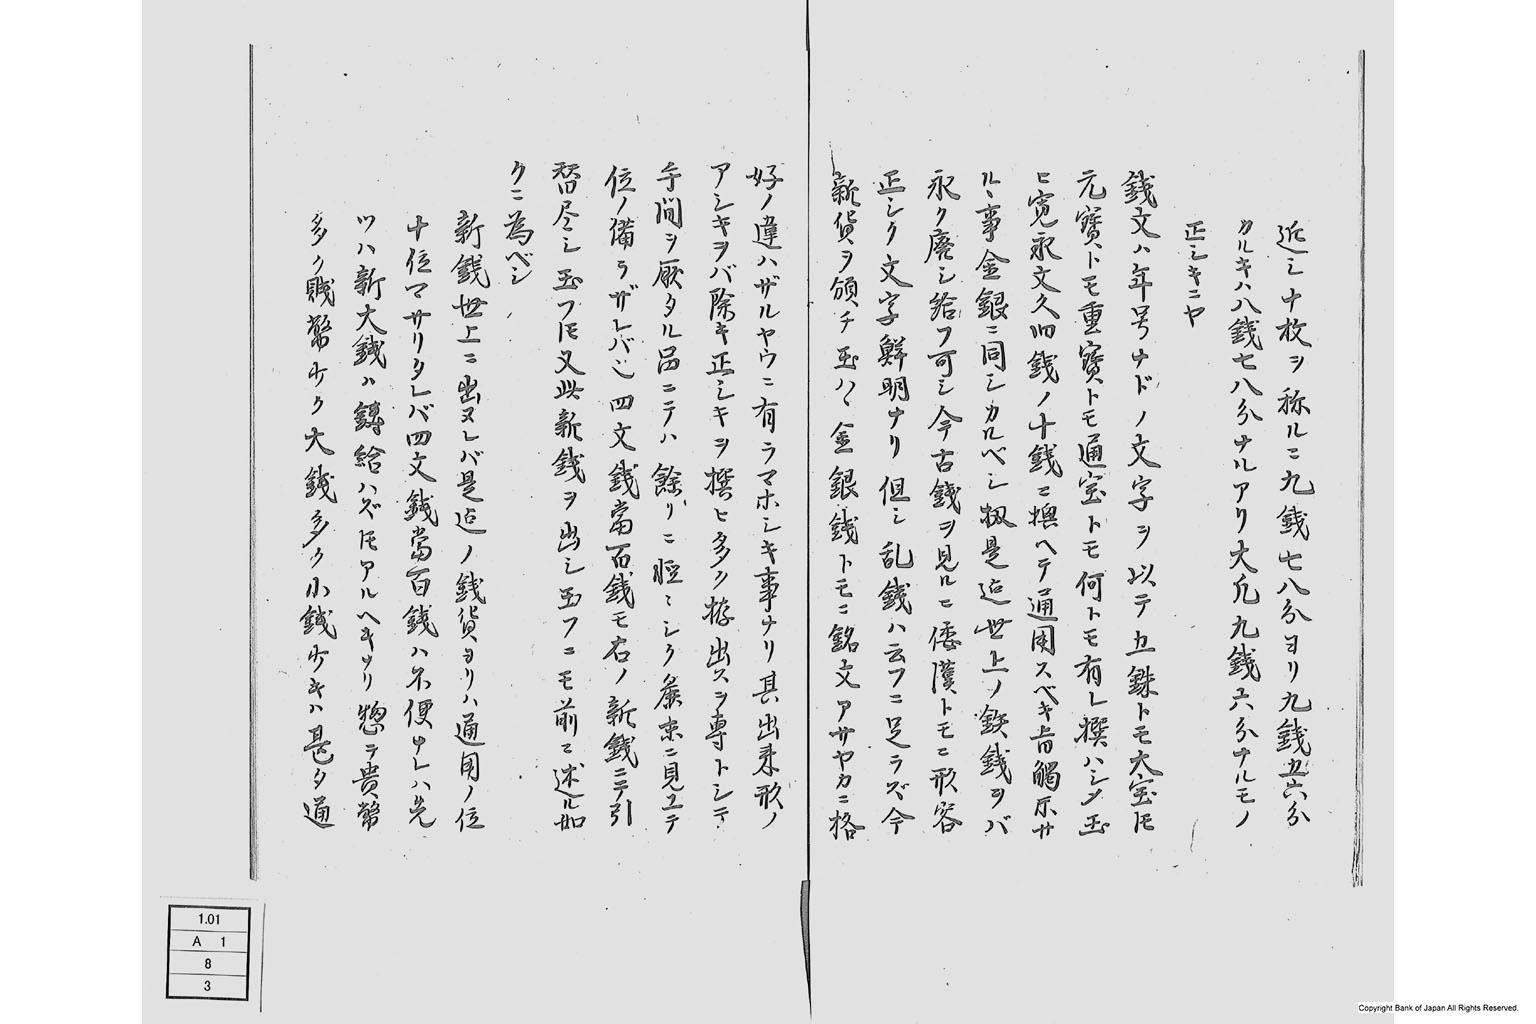 近シ十枚ヲ称ルニ九銭七八分ヨリ九銭五六分
カルキハ八銭七八分ナルアリ大凡九銭六分ナルモノ
正シキニヤ
銭文ハ年号ナドノ文字ヲ以テ五銖トモ大宝トモ
元寳トモ重寳トモ通宝トモ何トモ有レ撰ハシメ玉
ヒ寛永文久旧銭ノ十銭ニ換ヘテ通用スベキ旨觸示サ
ルヽ事金銀ニ同シカルベシ扨是迠世上ノ鉄銭ヲバ
永ク廃シ給フ可シ今古銭ヲ見ルニ倭漢トモニ形容
正シク文字鮮明ナリ但シ乱銭ハ云フニ足ラズ今
新貨ヲ頒チ玉ハヽ金銀銭トモニ銘文アサヤカニ格
好ノ違ハザルヤウニ有ラマホシキ事ナリ其出来形ノ
アシキヲバ除キ正シキヲ撰ヒ多ク拵出スヲ専トシテ
手間ヲ厭タル品ニテハ餘リニ軽々シク麁末ニ見エテ
位ノ備ラザレバ也四文銭當百銭モ右ノ新銭ニテ引
替尽シ玉フトモ又此新銭ヲ出シ玉フニモ前ニ述ル如
クニ為ベシ
新銭世上ニ出ヌレバ是迠ノ銭貨ヨリハ通用ノ位
十位マサリタレバ四文銭當百銭ハ不便ナレハ先
ツハ新大銭ハ鋳給ハズトモアルヘキナリ惣テ貴幣
多ク賎幣少ク大銭多ク小銭少キハ甚タ通
1.01
A 1
8
3
Copyright Bank of Japan All Rights Reserved.